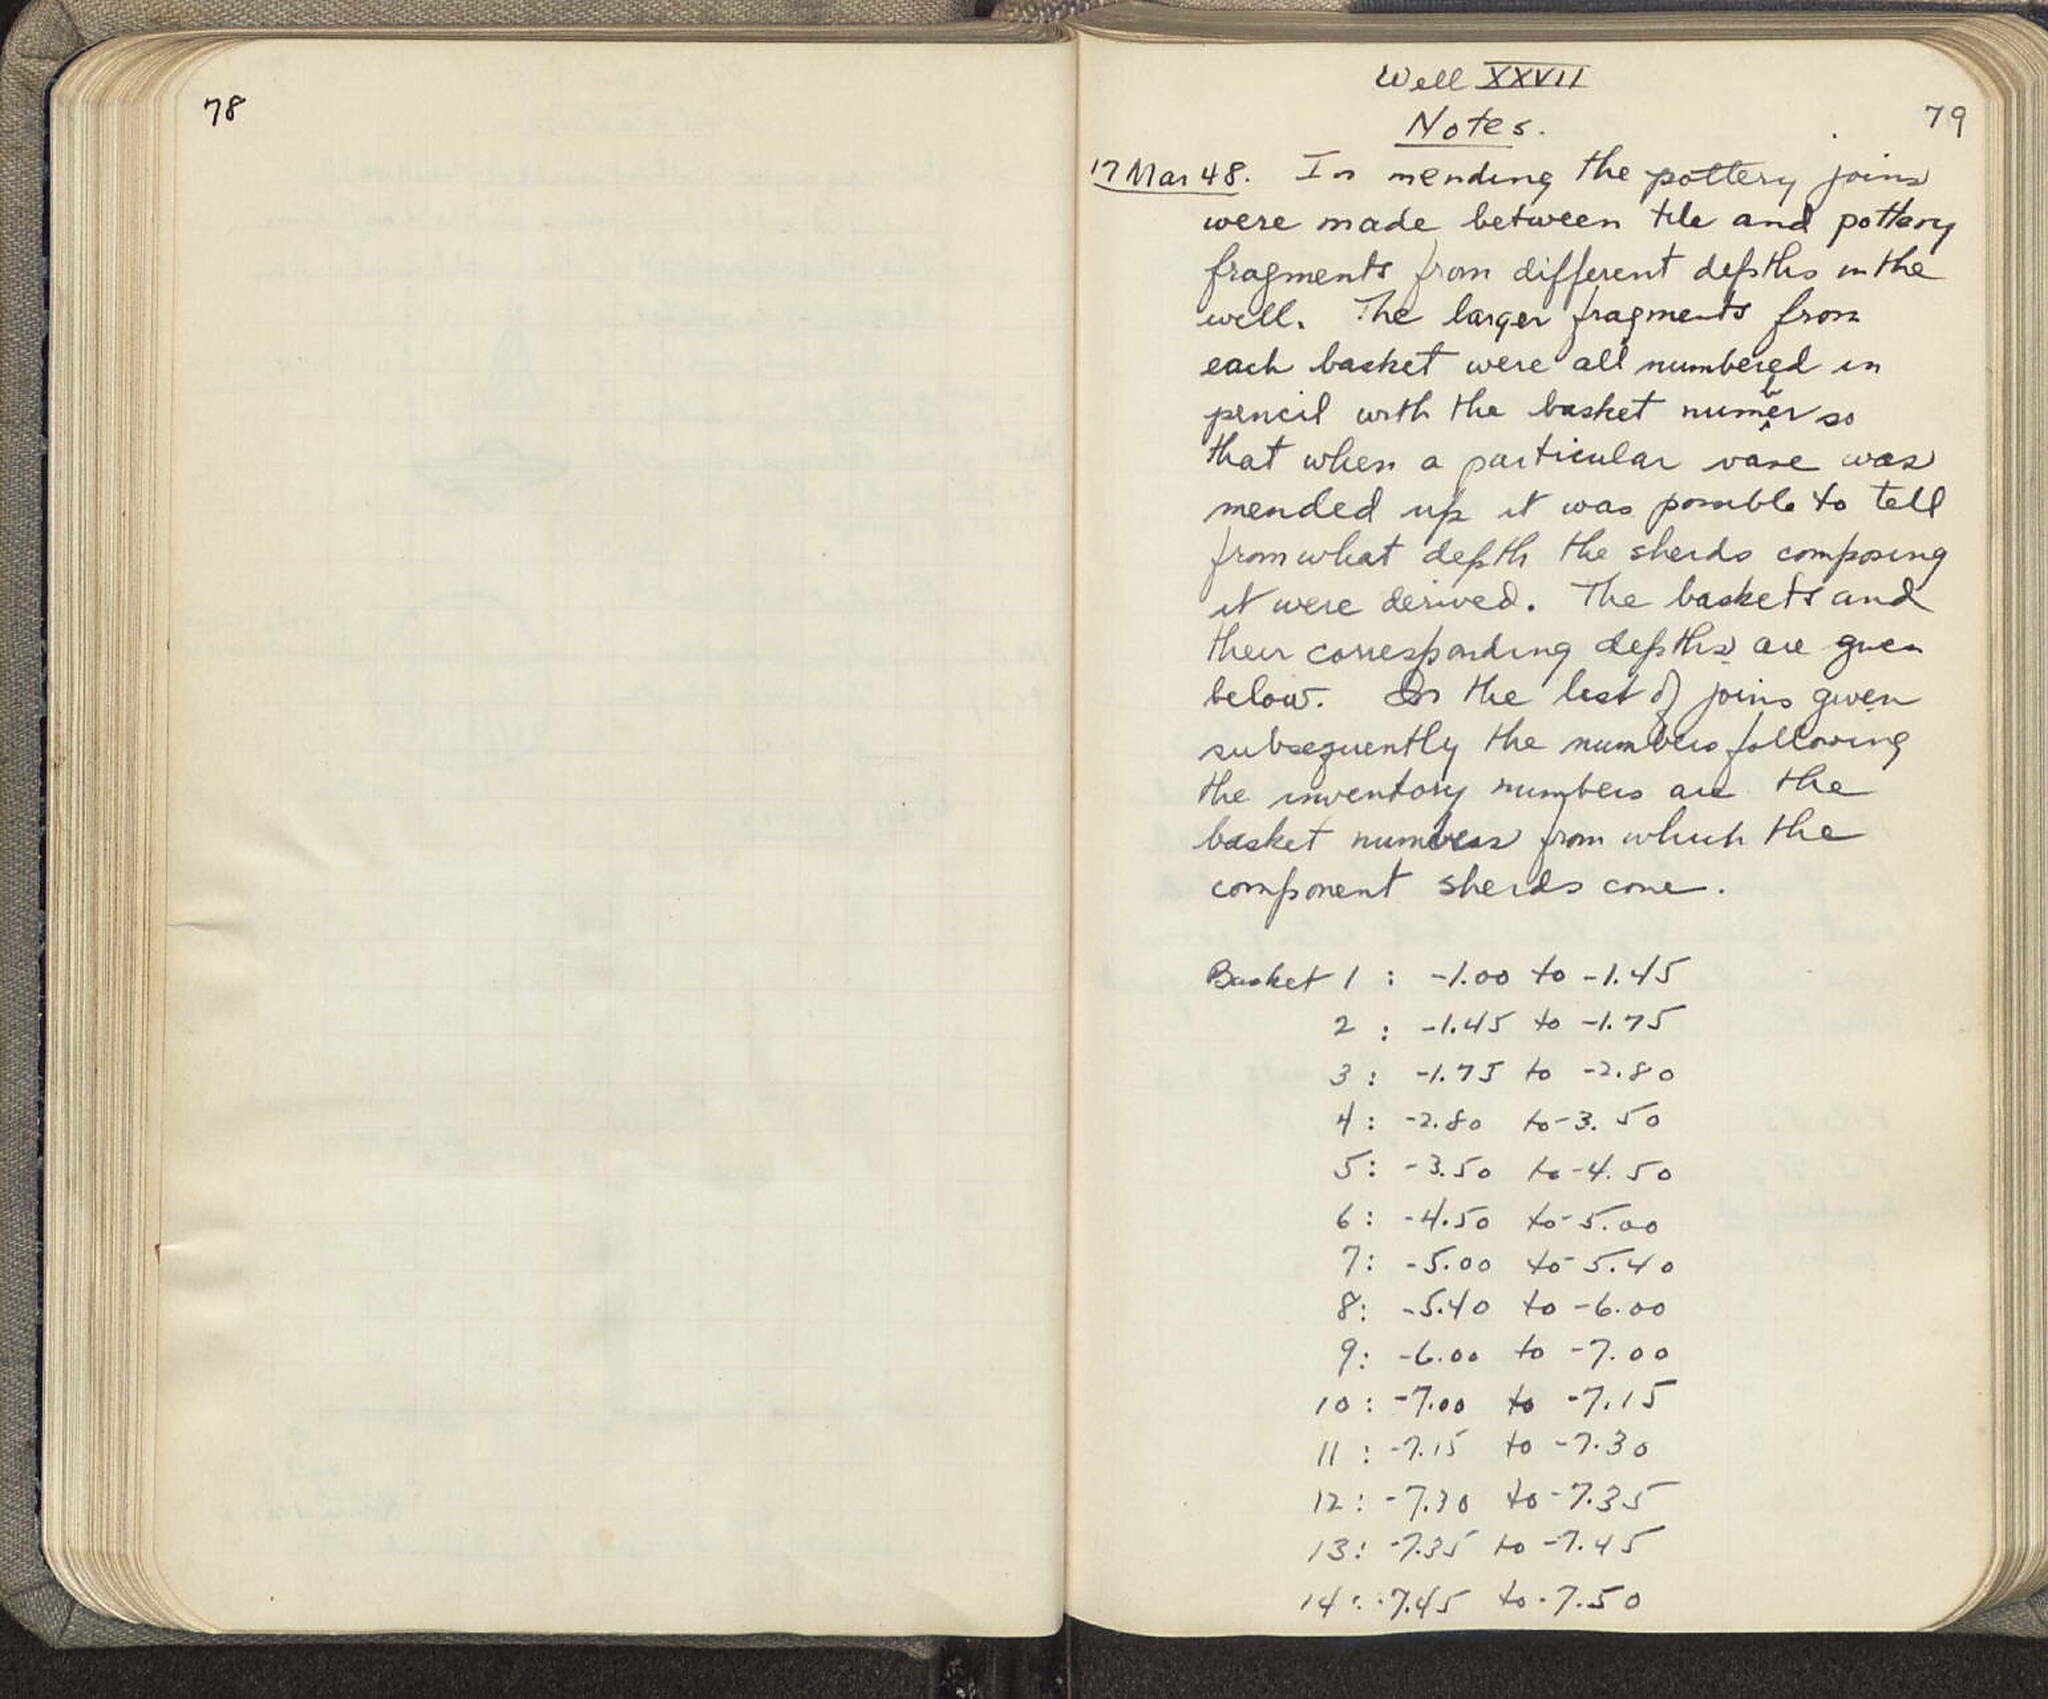 78
Well XXVII
79
Notes.
17 Mar 48. In mending the pottery joins
were made between tile and pottery
fragments from different depths in the
well. The larger fragments from
each basket were all numbered in
pencil with the basket number so
that when a particular vase was
mended up it was possible to tell
from what depth the sherds composing
it were derived. The baskets and
their corresponding depths are given
below. In the list of joins given
subsequently the numbers following
the inventory numbers are the
basket numbers from which the
component sherds come.
Basket 1 : -1.00 to -1.45
2 : -1.45 to -1.75
3 : -1.75 to -2.80
4 : -2.80 to -3.50
5 : -3.50 to -4.50
6 : -4.50 to -5.00
7 : -5.00 to -5.40
8 : -5.40 to -6.00
9 : -6.00 to -7.00
10 : -7.00 to -7.15
11 : -7.15 to -7.30
12 : -7.30 to -7.35
13 : -7.35 to -7.45
14 : -7.45 to -7.50